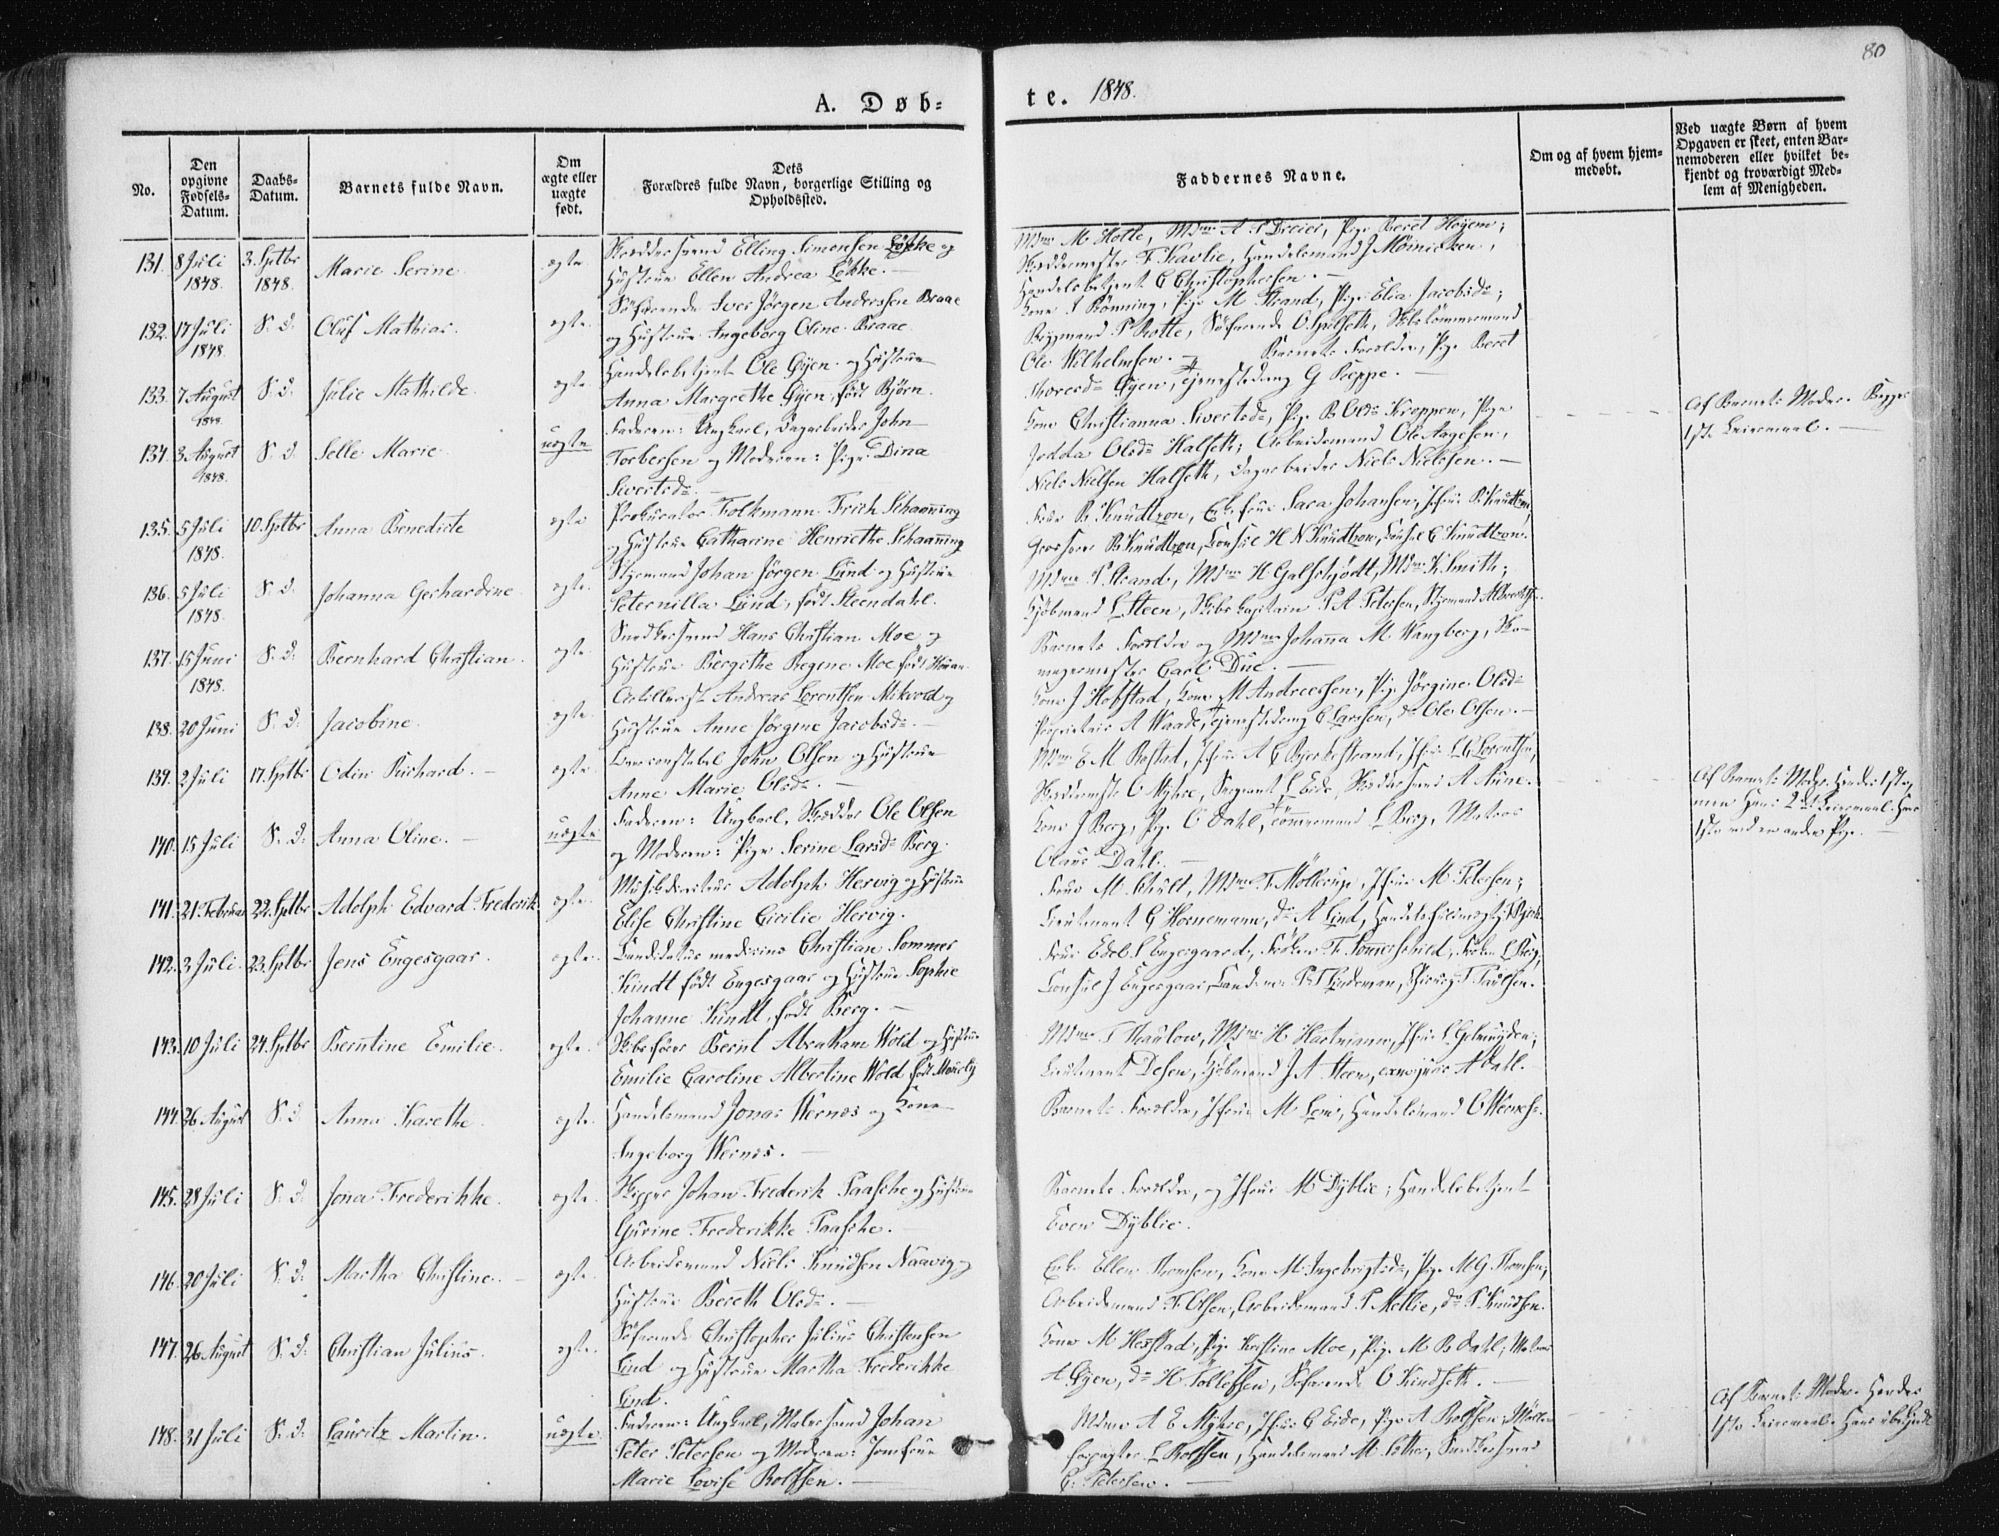 80
A. Døb-
te. 1848.
No.
Den opgivne Fødsels-Datum.
Daabs-Datum.
Barnets fulde Navn.
Om ægte eller uægte født.
Dets Forældres fulde Navn, borgerlige Stilling og Opholdssted.
Faddernes Navne.
Om og af hvem hjem-medøbt.
Ved uægte Børn af hvem Opgaven er skeet, enten Bar-nemoderen eller hvilket be-kjendt og troværdigt Med-lem af Menigheden.
131. 8 Juli 1848. 3. Sptbr 1848. Marie Serine ægte
Skræddersvend Elling Simonsen Løkke og
Hustrue Ellen Andrea Løkke.
Mdme M Hotte, Mdme A P Dreier, Pige Beret Høyem;
Skræddermester F Kavlie, Handelsmand J Mørnicken,
Handelsbetjent C Christophersen.
132. 17 Juli 1848. S. D. Oluf Mathias. ægte.
Søfarende Iver Jørgen Anderssen Braae
og Hustrue Ingeborg Oline Braae
Kone I Rønning, Pige M Strand, Pige Elia Jacobsdr;
Bryggmand P Rotte, Søfarende O Hilseth, Skibstømmermand
Ole Wilhelmsen.
133. 7 August 1848. S. D. Julie Mathilde. ægte.
Handelsbetjent Ole Øyen og Hustrue
Anna Margrethe Øyen, født Bjørn.
Barnets Forældre, Pige Beret
Thoresdr Øyen, tjenestedreng G Kieppe.
134. 3 August 1848. S. D. Selle Marie. uægte
Faderen: Ungkarl, Dagarbeider John
Torbersen og Moderen: Pige Dina
Sivertsdr.
Kone Christianna Sivertsdr, Pige B Olsdr Kroppen, Pige
Jedda Olsdr Halseth; Arbeidsmand Ole Aagesen,
Niels Nielsen Halseth, Dagarbeider Niels Nielsen.
Af Barnets Moder. Begges
1ste Leiermaal.
135. 5 Juli 1848. 10. Sptbr Anna Benedicte ægte
Prokurator Folkmann Frich Schaanning
og Hustrue Catharine Henriethe Schaanning
Frue B Knudtzon, Enkefrue Sara Johansen, Jfrue B Knudtzon,
Grosserer B Knudtzon, Consul H N Knudtzon, Consul C Knudtzon.
136. 5 Juli 1848. S. D. Johanna Gerhardine ægte.
Styrmand Johan Jørgen Lund og Hustrue
Peternilla Lund, født Steendahl.
Mdme S Strand, Mdme H Galschjødt, Mdme K Smith;
Kjøbmand L Steen, Skibskapitain P A Petersen, Styrmand Albrechtsen
137. 15 Juni 1848. S. D. Bernhard Christian. ægte.
Snedkersvend Hans Christian Moe og
Hustrue Bergithe Regine Moe født
Barnets Forældre og Mdme Johanna M Wangberg, Sko-
magermester Carl Due.
138. 20 Juni S. D. Jacobine. ægte.
Artillerist Andreas Lorentsen Mekvold og
Hustrue Anne Jørgine Jacobsdr
Kone J Hofstad, Kone M Andreessen, Pige Jørgine Olsdr
Proprietair A Waade, tjenestedreng E Larssen, do Ole Olsen.
139. 2 Juli 17. Sptbr Odin Richard. ægte.
John Olsen og Hustrue
Anne Marie Olsdr.
Mdme E M Rostad, Jfrue A C Bjerkestrand, Jfrue L C Lorentsen;
Skrædderm. O Myhre, Sergeant L Eide, Skræddersvend A Aune.
140. 15 Juli S. D. Anna Oline. uægte
Faderen: Ungkarl, Skrædder Ole Olsen
og Moderen: Pige Serine Larsdr Berg.
Kone J Berg, Pige O Dahl, Tømmermand L Berg, Matros
Olaus Dahl.
Af Barnets Moder. Hendes 1ste,
men Hans 2det Leiermaal. Hans
1ste ved en anden Pige.
141. 21. Februar 22. Sptbr Adolph Edvard Frederik ægte.
Musikdirecteur Adolph Hervig og Hustrue
Elise Christine Cicilie Hervig.
Frue M Schult, Mdme F Møllerup, Jfrue M Petersen;
Lieutenant C Hornemann, do A Lind, Handelsfuldmægtig
142. 3 Juli. 23. Sptbr Jens Engesgaar. ægte.
Candidatus medicine Christian Sommer
Kindt født Engesgaar og Hustrue Sophie
Johanne Kindt, født Berg.
Frue Edel S Engesgaard, Frøken F Sommerschild, Frøken L Berg,
Consul J Engesgaar, P T Lindeman, Chirurg T Paulsen.
143. 10 Juli 24. Sptbr Berntine Emilie. ægte.
Skibsfører Bernt Abraham Wold og Hustrue
Emilie Caroline Albertine Wold født
Mdme T Thaulow, Mdme H Hartmann, Jfrue S Gelmuyden;
Lieutenant Desen, Kjøbmand J A Steen, exam. jur. A Dahl.
144. 26 August S. D Anna Karethe. ægte.
Handelsmand Jonas Wernes og Kone
Ingeborg Wernes.
Barnets Forældre, Jfrue M Lein, Handelsmand O Wernes.
145. 28 Juli S. D. Jona Frederikke. ægte.
Skipper Johan Frederik Paasche og Hustrue
Gurine Frederikke Paasche.
Barnets Forældre, og Jfrue M Dyblie; Handelsbetjent
Even Dyblie.
146. 20 Juli S. D. Martha Christine. ægte.
Arbeidsmand Niels Knudsen Naavig og
Hustrue Bereth Olsdr.
Enke Ellen Thomsen, Kone M Ingebrigtsdr, Pige M G Thomsen;
Arbeidsmand F Olsen, Arbeidsmand P Mellie, do P Knudsen.
147. 26 August S. D. Christian Julius. ægte.
Søfarende Christopher Julius Christensen
Lind og Hustrue Martha Frederikke
Lind.
Kone M Hegstad, Pige Kristine Moe, Pige M B Dahl, Matros
A Øyen, do H Tollefsen, Søfarende O Kindseth.
148. 31 Juli S. D. Lauritz Martin. uægte.
Faderen: Ungkarl, Malersvend Johan
Peter Petersen og Moderen: Jomfrue
Marie Lovise Rolfsen.
Mdme A E Myhre, Jfrue C Eide, Pige A Rolfsen; Møller-
forpagter L Rolfsen, Handelsmand M, Snedkersvend
C. Petersen.
Af Barnets Moder. Hendes
1ste Leiermaal. Hans ubekjendt